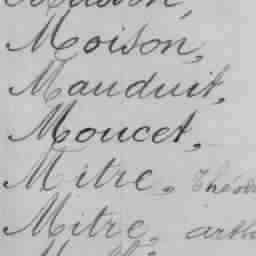 Moison,
Mauduit,
Moucet,
Mitre, Théod
Mitre, arth